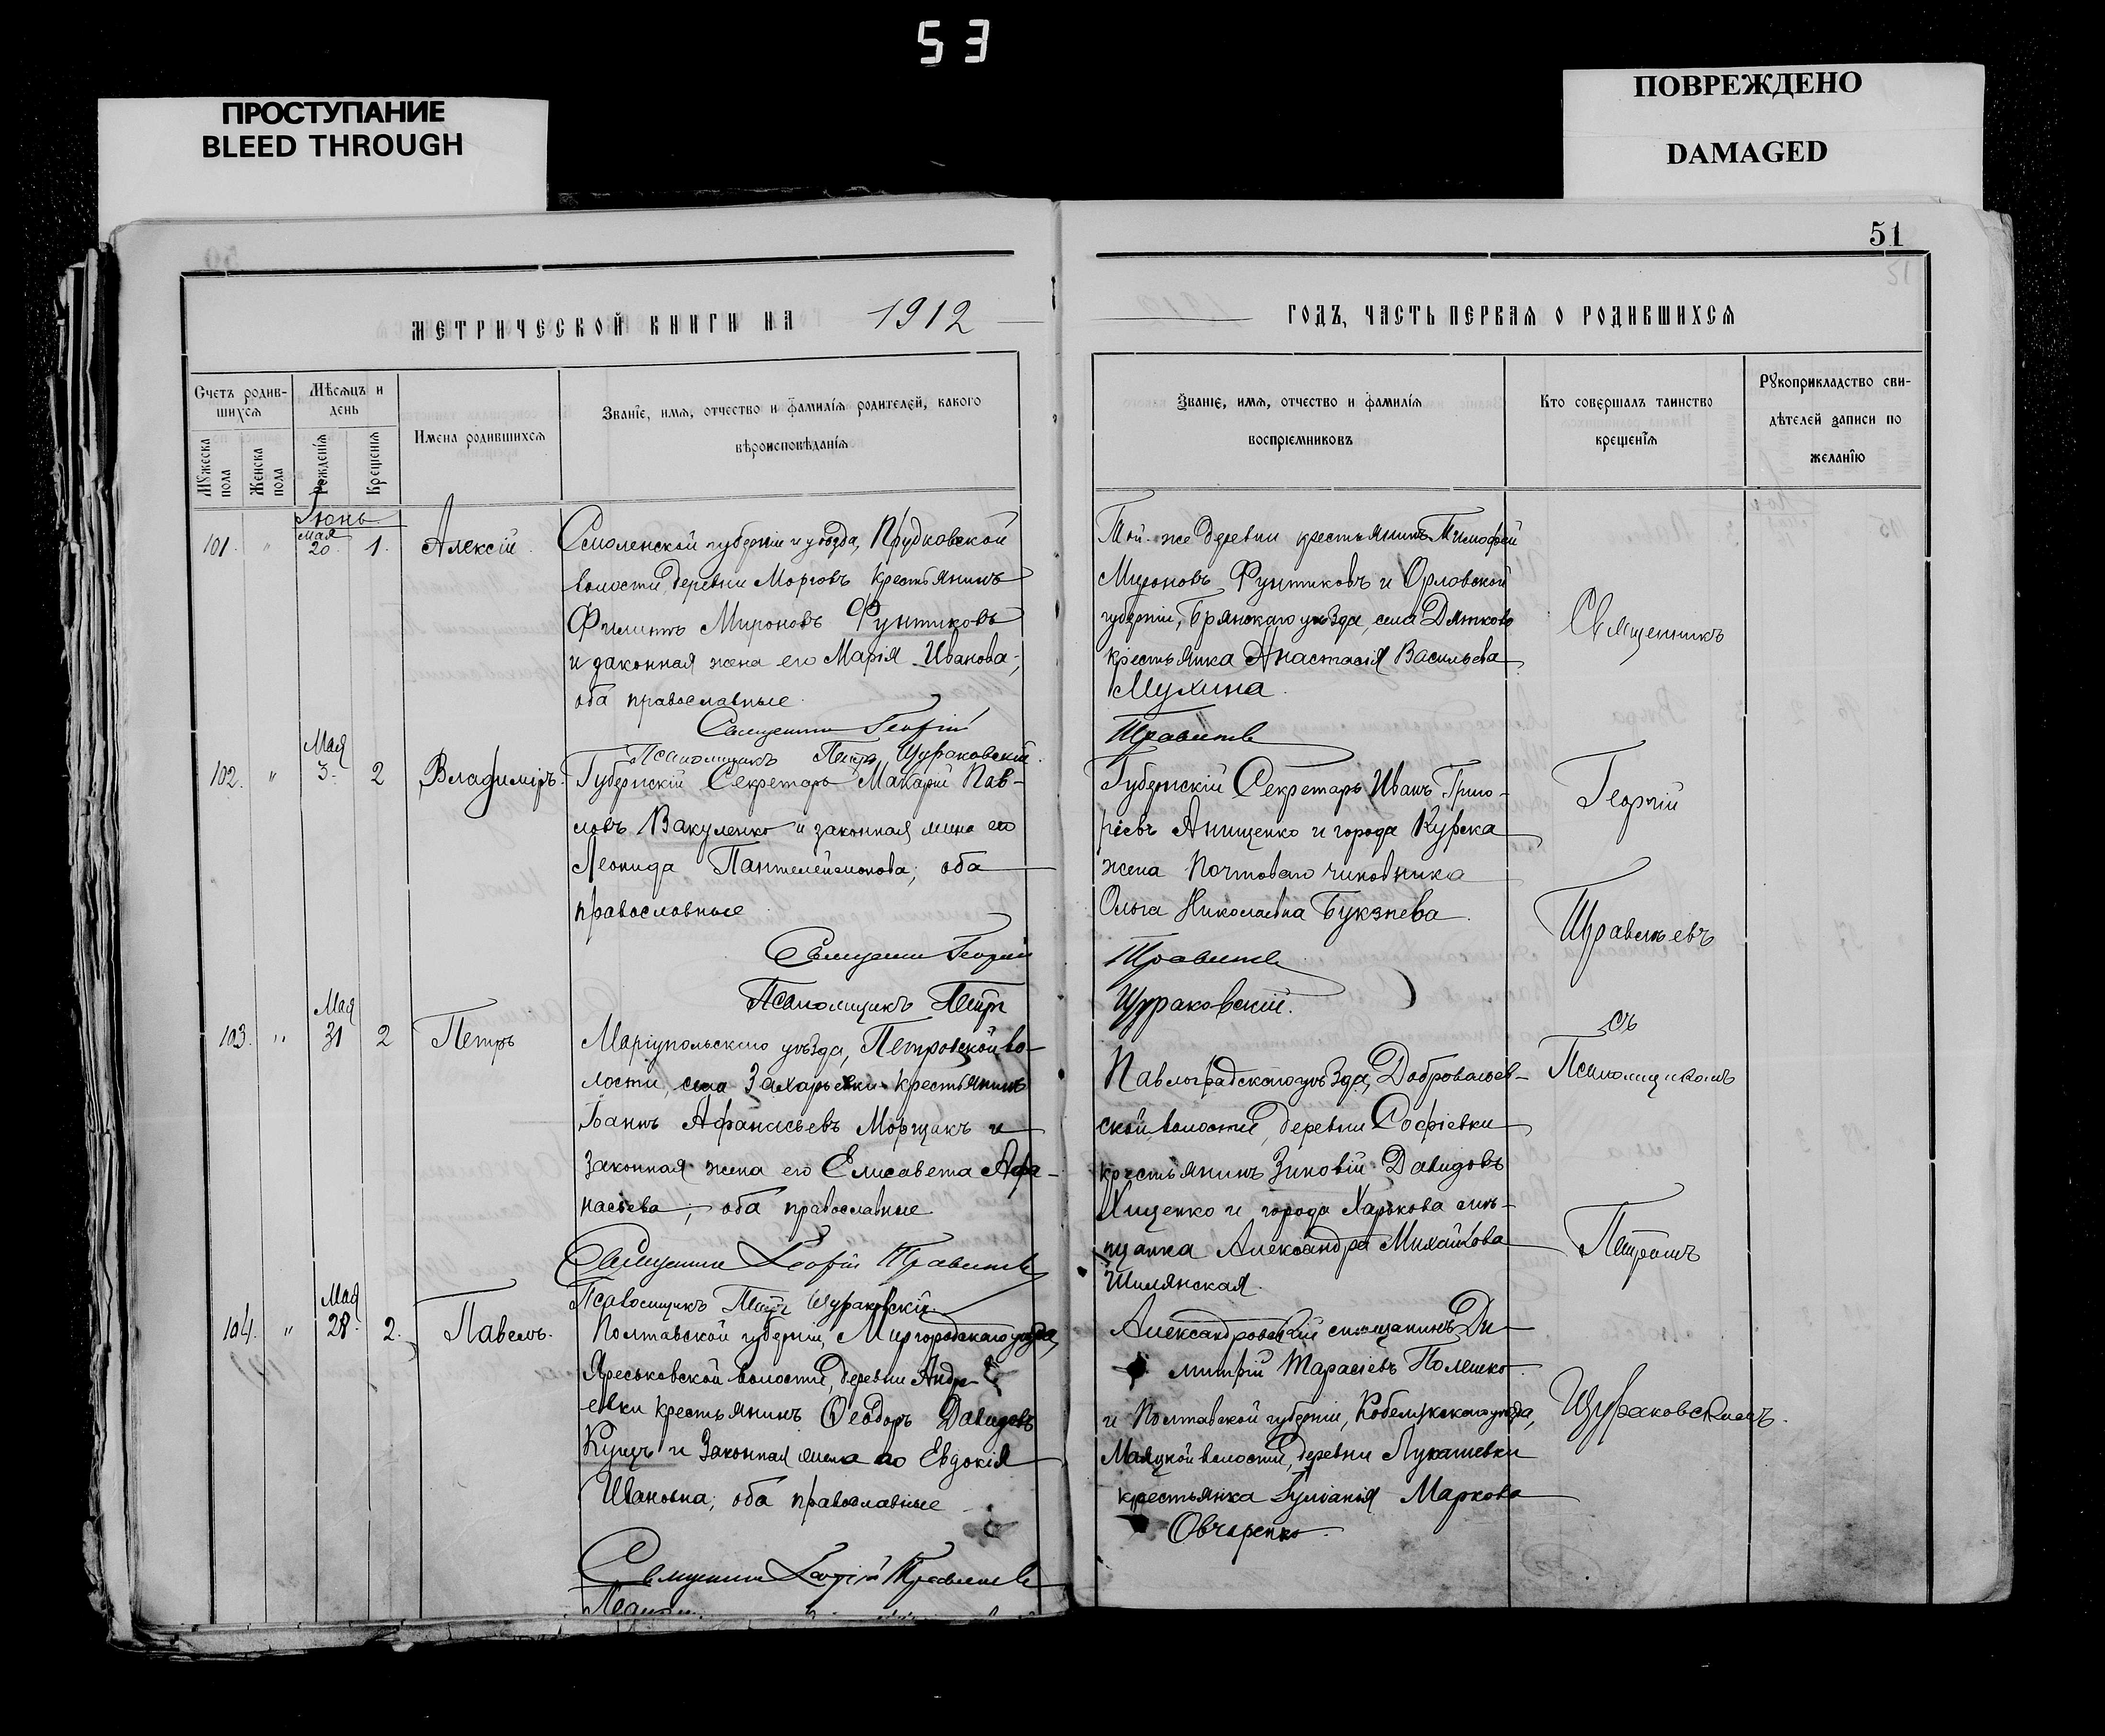 53
ПРОСТУПАНИЕ
BLEED THROUGH
ПОВРЕЖДЕНО
DAMAGED
51
МЕТРИЧЕСКОЙ КНИГИ НА 1912
ГОДЪ, ЧАСТЬ ПЕРВАЯ О РОДИВШИХСЯ
Счетъ родив-
шихся
Мѣсяцъ и
день
Мужеска
пола
Женска
пола
Рожденія
Крещенія
Имена родившихся
Званіе, имя, отчество и фамилія родителей, какого
вѣроисповѣданія
Званіе, имя, отчество и фамилія
воспріемниковъ
Кто совершалъ таинство
крещенія
Рукоприкладство сви-
дѣтелей записи по
желанію
Іюнь
101. " Мая 20. 1. Алексій.
Смоленской губерніи и уѣзда, Прудковской
волости, деревни Морговъ крестьянинъ
Филиппъ Мироновъ Фунтиковъ
и законная жена его Марія Иванова;
оба православные.
Священникъ Георгій
Псаломщикъ Петръ Щураковскій.
Той-же деревни крестьянинъ Тимофей
Мироновъ Фунтиковъ и Орловской
губерніи, Брянскаго уѣзда, села Дятково
крестьянка Анастасія Васильева
Мухина.
102. " Мая 3. 2 Владиміръ.
Губернскій Секретарь Макарій Пав-
ловъ Вакуленко и законная жена его
Леонида Пантелеймонова; оба
православные
Священникъ Георгій
Псаломщикъ Петръ
Губернскій Секретарь Иванъ Григо-
ріевъ Анищенко и города Курска
жена Почтоваго чиновника
Ольга Николаевна
Щураковскій.
103. " Мая 31 2 Петръ
Маріупольскаго уѣзда, Петровской во-
лости, села Захарьевки крестьянинъ
Іоаннъ АфанасьевъМорщакъ и
законная жена его Елисавета Афа-
насьева; оба православные.
Священникъ Георгій
Псаломщикъ Петръ Щураковскій
Павлоградскаго уѣзда,
ской волости, деревни Софіевки
крестьянинъ Зиновій Давидовъ
Хищенко и города Харькова мѣ-
щанка Александра Михайлова
Шилянская.
104. " Мая 28. 2. Павелъ.
Полтавской губерніи, Миргородскаго уѣзда,
Яреськовской волости, деревни Андре-
евки крестьянинъ Ѳеодоръ Давидовъ
Куцъ и законная жена его Евдокія
Ивановна; оба православные
Священникъ Георгій
Александровскій мѣщанинъ Ди-
митрій Тарасіевъ
и Полтавской губерніи, Кобелякскаго уѣзда,
Маяцкой волости, деревни Лукашевки
крестьянка Іуліанія Маркова
Овчаренко.
Священникъ
Георгій
съ
Псаломщикомъ
Петромъ
Щураковскимъ.